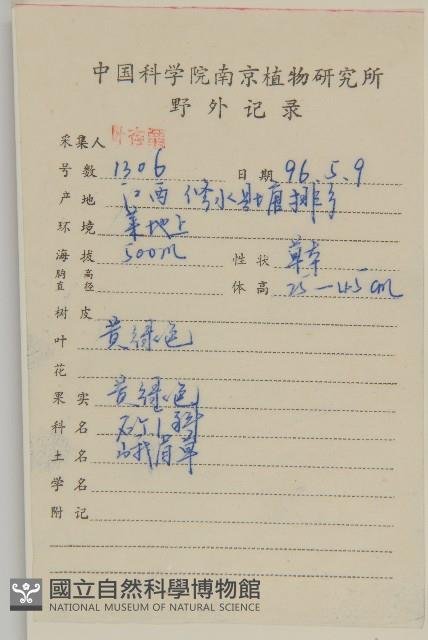 中国科学院南京植物研究所
野外记录
采集人
号数 1306 日期 96.5.9
产地 江西 修水县 排
环境 菜地上
海拔 500m 性状 草本
胸高直径 体高 25—45cm
树皮
叶 黄绿色
花
果实 黄绿色
科名 石竹科
土名 草
学名
附记
國立自然科學博物館
NATIONAL MUSEUM OF NATURAL SCIENCE